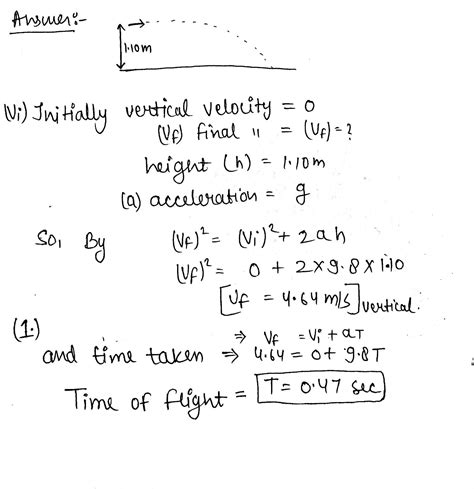 Answer:-
1.10m
(Vi) Initially vertical velocity = 0
(Vf) final " = (Vf) = ?
height (h) = 1.10m
(a) acceleration = g
So, By (Vf)² = (Vi)² + 2ah
(Vf)² = 0 + 2×9.8×1.10
[Vf = 4.64 m/s] vertical.
(1.) ⇒ Vf = Vi + aT
and time taken ⇒ 4.64 = 0 + 9.8T
Time of flight = T = 0.47 sec